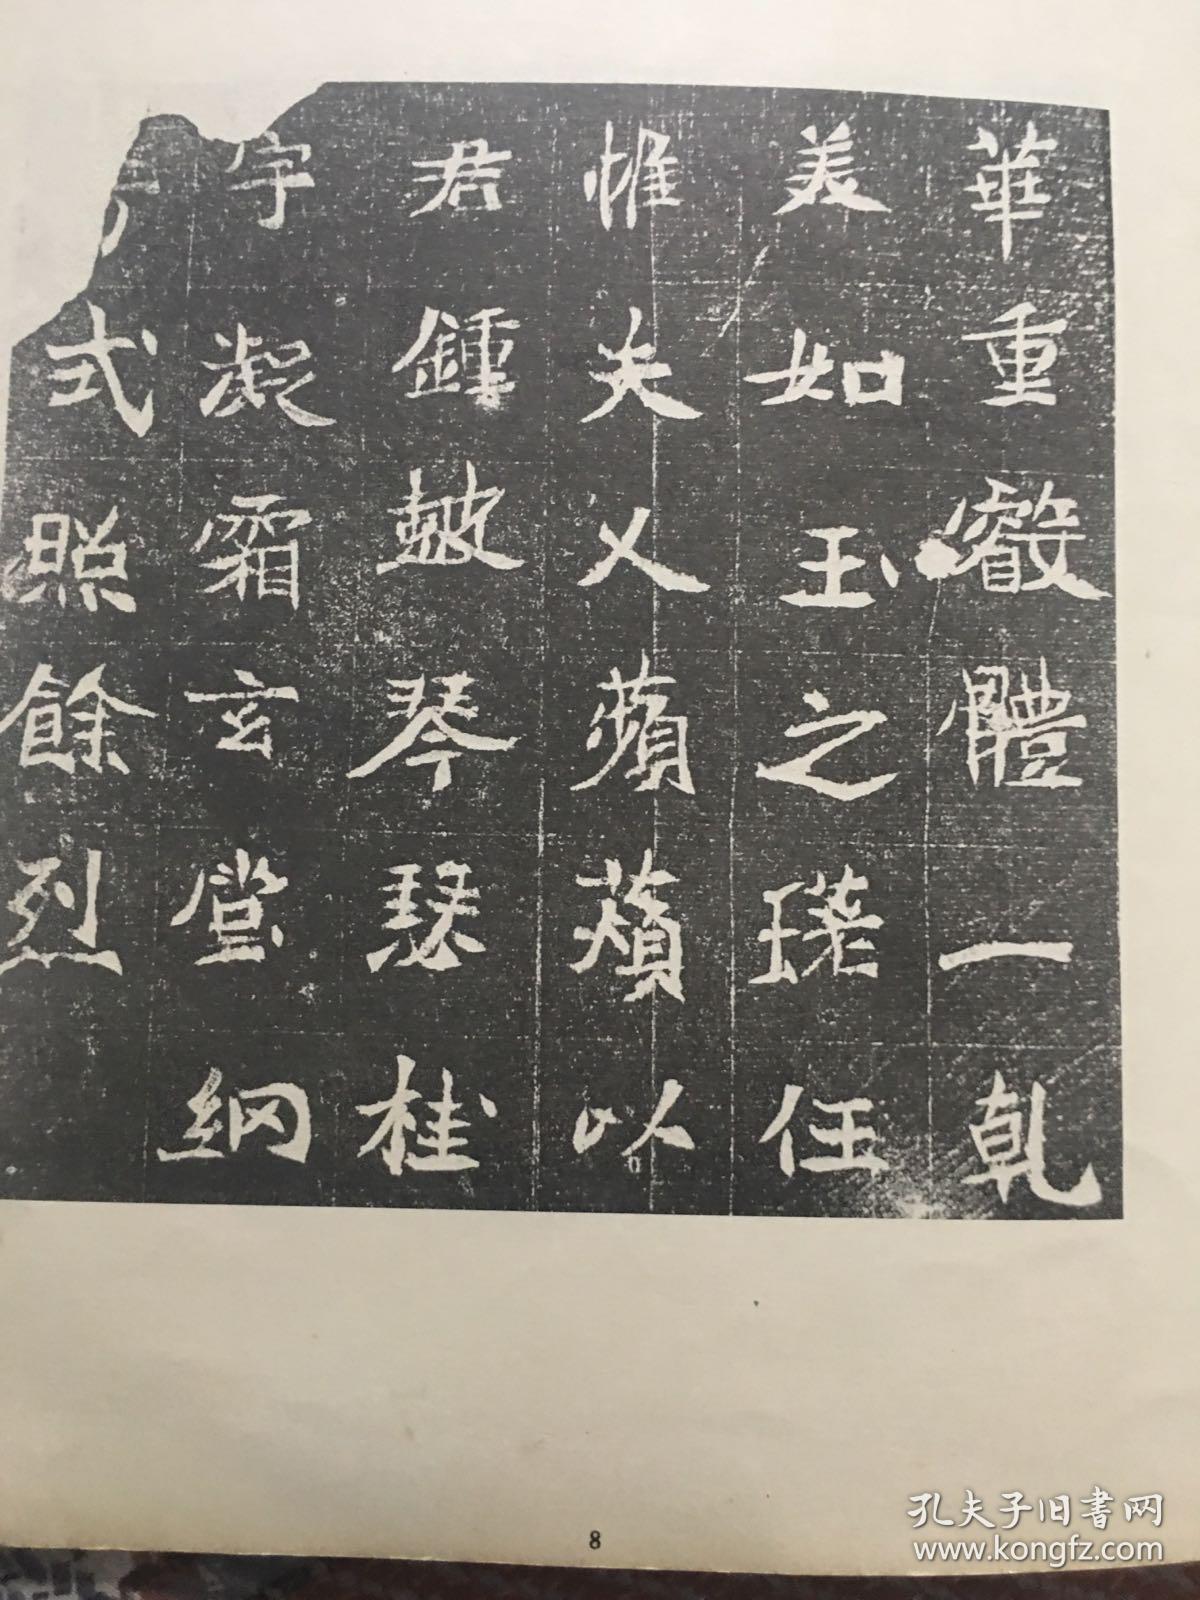 華重叡體一乹
美如玉之琇任
惟夫人蘋蘋以
君鍾鼓琴瑟桂
宇凝霜玄堂網
式照餘烈
8
孔夫子旧书网
www.kongfz.com